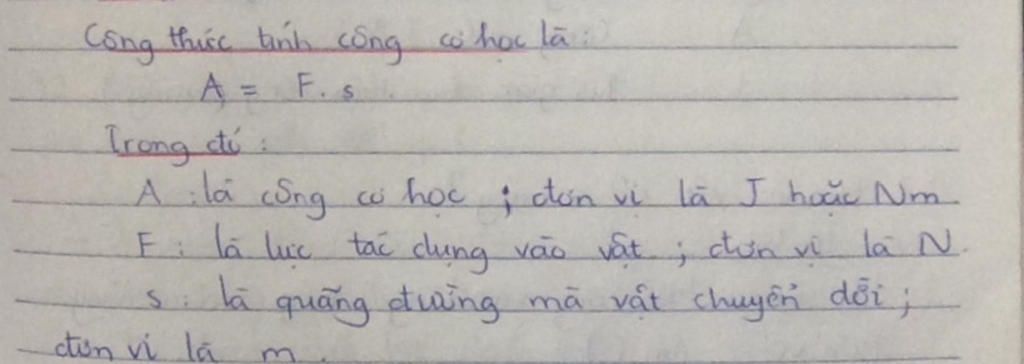 Công thức tính công cơ học là:
A = F. s
Trong đó:
A: là công cơ học; đơn vị là J hoặc Nm
F: là lực tác dụng vào vật; đơn vị là N.
s: là quãng đường mà vật chuyển dời;
đơn vị là m.